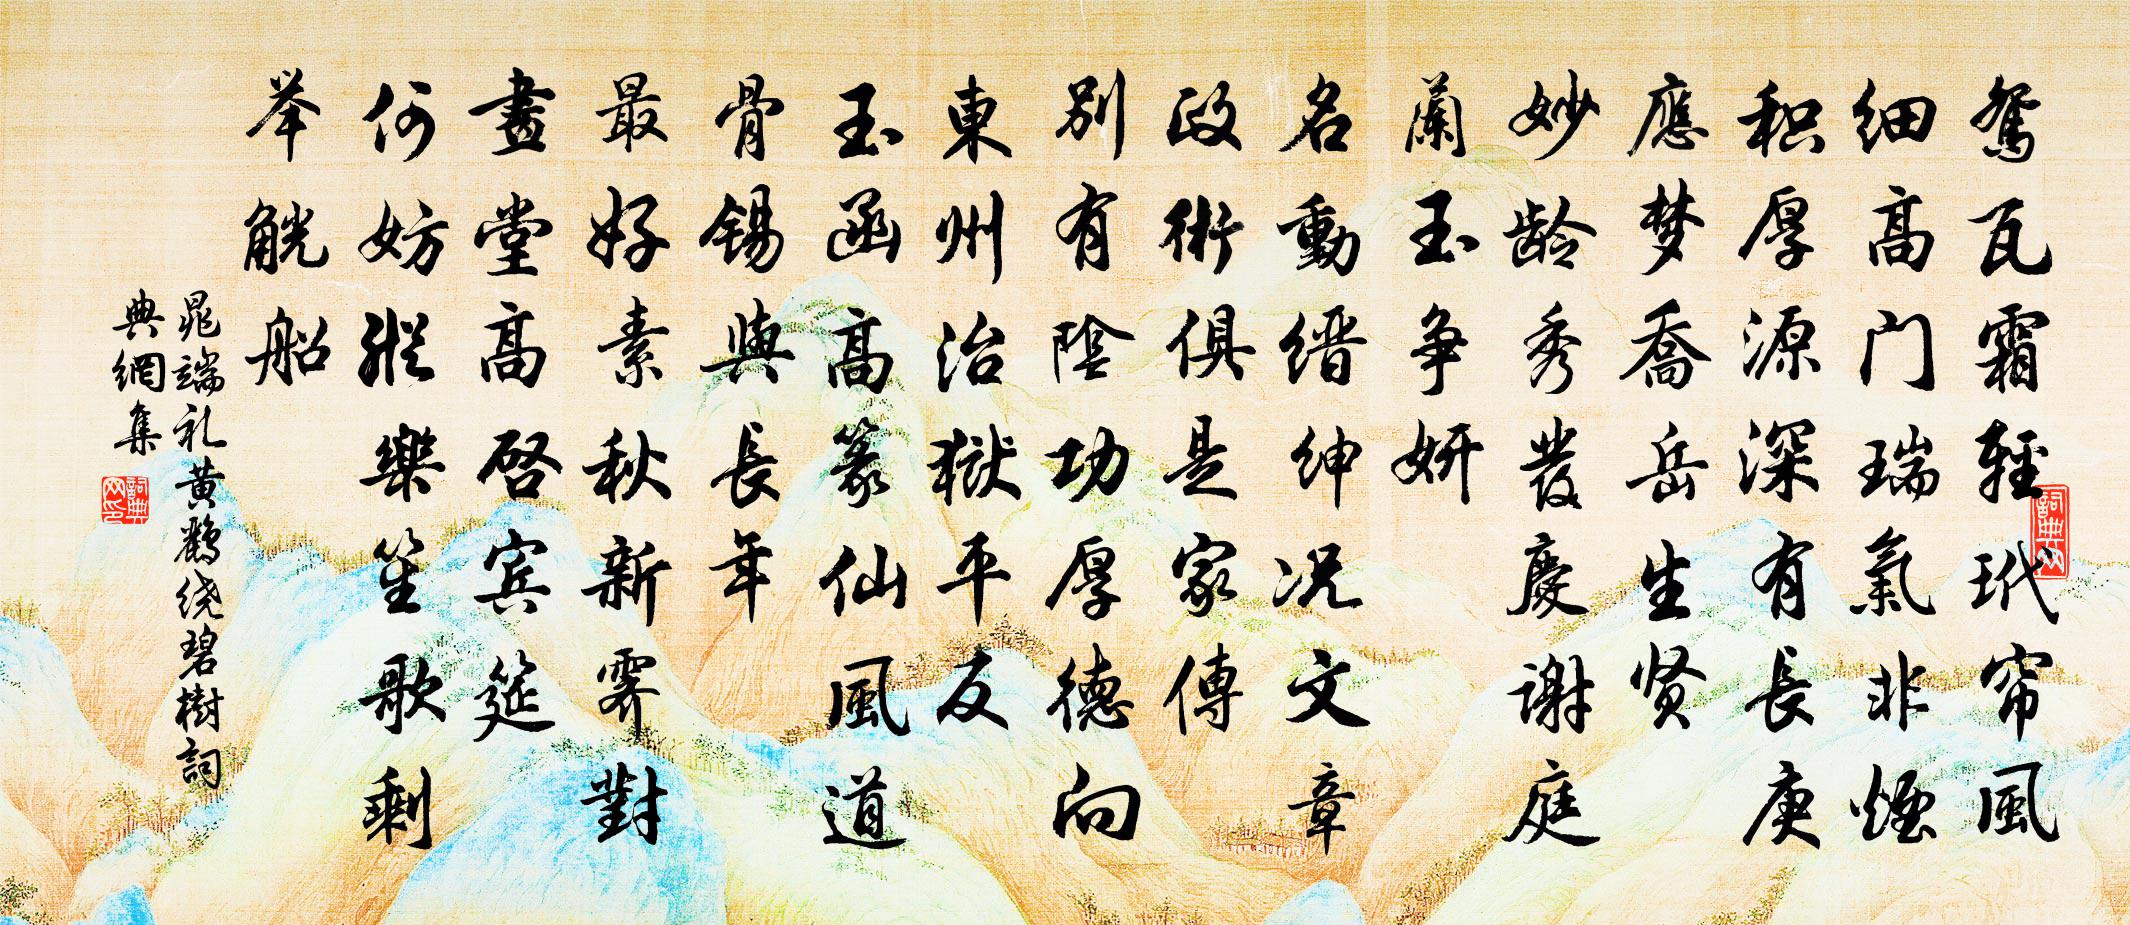 鸳瓦霜轻玳帘风
细高门瑞氣非煙
积厚源深有長庚
應梦喬岳生贤
妙龄秀發慶谢庭
蘭玉争妍
名動缙绅况文章
政術俱是家傳
别有陰功厚德向
東州治獄平反
玉函高篆仙風道
骨锡與長年
最好素秋新霁對
畫堂高啓宾筵
何妨縱樂笙歌剩
举觥船
晁端礼黄鹤绕碧樹詞
典網集
詞典网
詞典网印